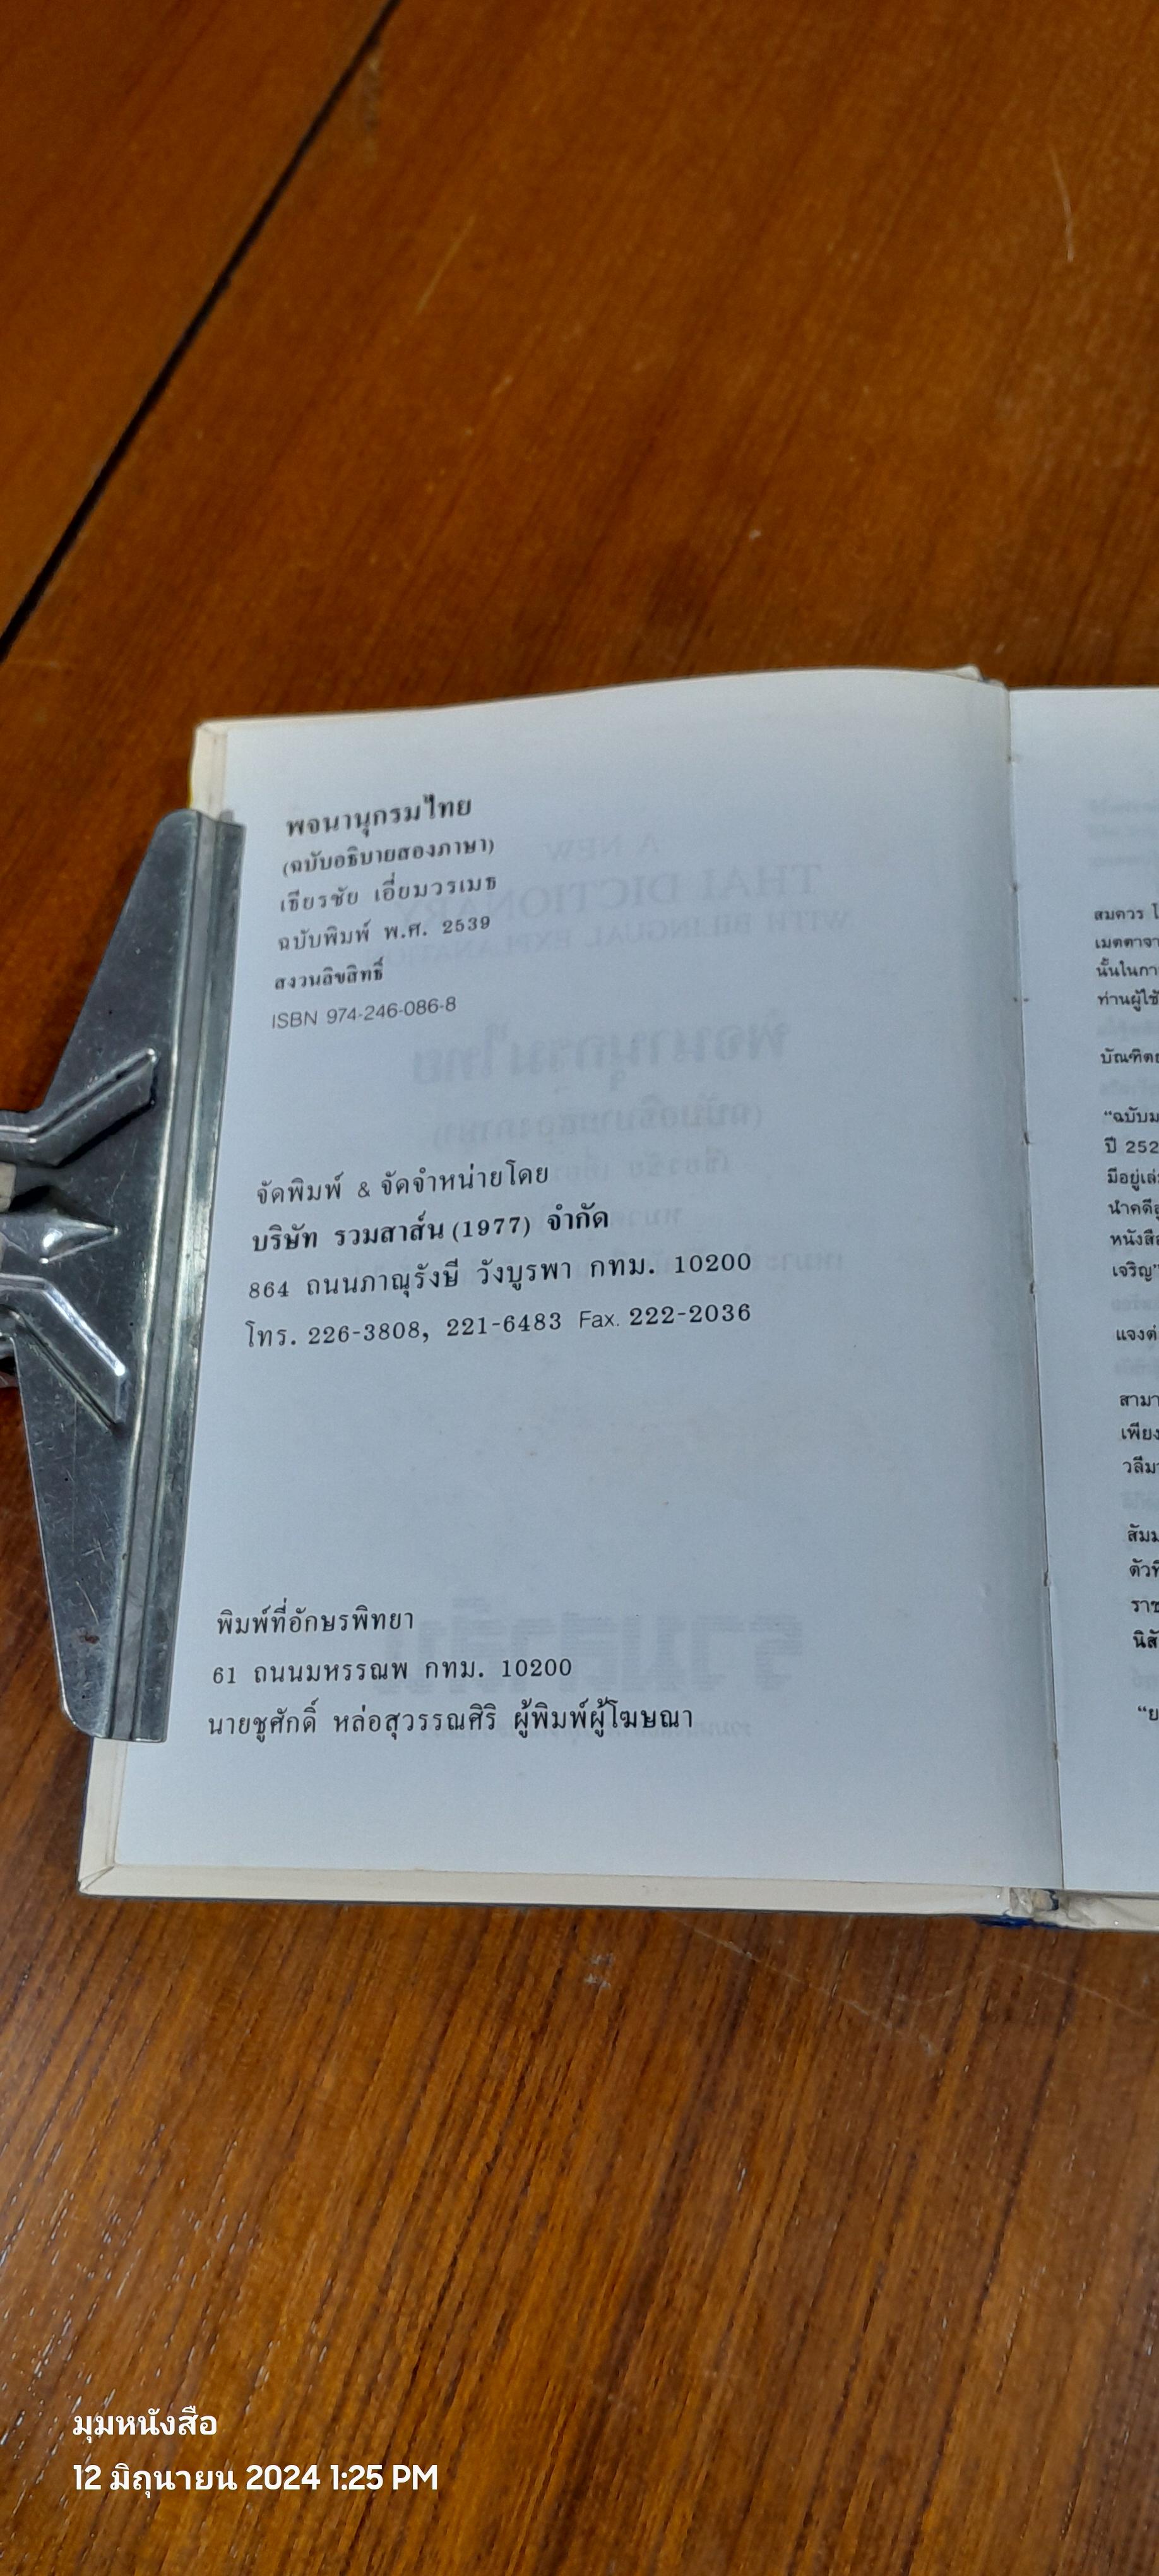 พจนานุกรมไทย
(ฉบับอธิบายสองภาษา)
เธียรชัย เอี่ยมวรเมธ
ฉบับพิมพ์ พ.ศ. 2539
สงวนลิขสิทธิ์
ISBN 974-246-086-8
จัดพิมพ์ & จัดจำหน่ายโดย
บริษัท รวมสาส์น (1977) จำกัด
864 ถนนภาณุรังษี วังบูรพา กทม. 10200
โทร. 226-3808, 221-6483 Fax. 222-2036
พิมพ์ที่อักษรพิทยา
61 ถนนมหรรณพ กทม. 10200
นายชูศักดิ์ หล่อสุวรรณศิริ ผู้พิมพ์ผู้โฆษณา
สมควร
เมตตาจา
นั้นในกา
ท่านผู้ใช้
บัณฑิตย
“ฉบับม
ปี 252
มีอยู่เล่ม
นำคดีสู
หนังสือ
เจริญ”
แจงต่
สามา
เพียง
วลีมา
สัมม
ตัวที่
ราช
นิสั
“ย
มุมหนังสือ
12 มิถุนายน 2024 1:25 PM